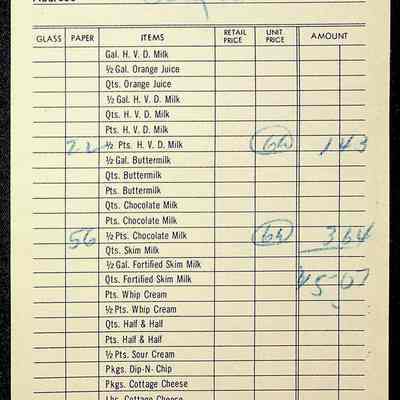 GLASS PAPER ITEMS RETAIL PRICE UNIT PRICE AMOUNT
Gal. H. V. D. Milk
½ Gal. Orange Juice
Qts. Orange Juice
½ Gal. H. V. D. Milk
Qts. H. V. D. Milk
Pts. H. V. D. Milk
½ Pts. H. V. D. Milk
½ Gal. Buttermilk
Qts. Buttermilk
Pts. Buttermilk
Qts. Chocolate Milk
Pts. Chocolate Milk
56 ½ Pts. Chocolate Milk 364
Qts. Skim Milk
½ Gal. Fortified Skim Milk
Qts. Fortified Skim Milk
Pts. Whip Cream
½ Pts. Whip Cream
Qts. Half & Half
Pts. Half & Half
½ Pts. Sour Cream
Pkgs. Dip-N- Chip
Pkgs. Cottage Cheese
Lbs. Cottage Cheese